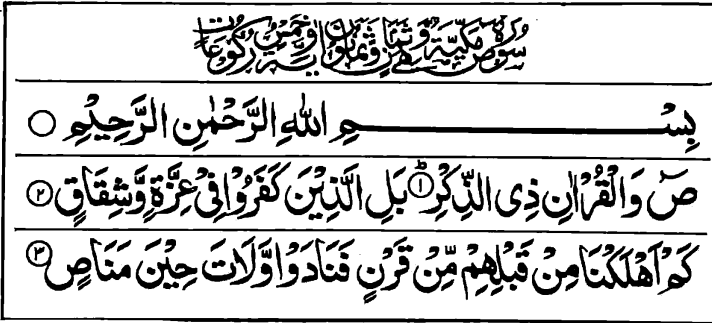 سُوْرَةُ صٓ مَكِّيَّةٌ وَّهِيَ ثَمَانٍ وَّثَمَانُوْنَ اٰيَةً وَّخَمْسُ رُكُوْعَاتٍ
بِسْــــــــــــــــمِ اللّٰهِ الرَّحْمٰنِ الرَّحِيْمِ ○
صٓ وَالْقُرْاٰنِ ذِى الذِّكْرِؕ۝۱ بَلِ الَّذِيْنَ كَفَرُوْا فِيْ عِزَّةٍ وَّشِقَاقٍ۝۲
كَمْ اَهْلَكْنَا مِنْ قَبْلِهِمْ مِّنْ قَرْنٍ فَنَادَوْا وَّلَاتَ حِيْنَ مَنَاصٍ۝۳